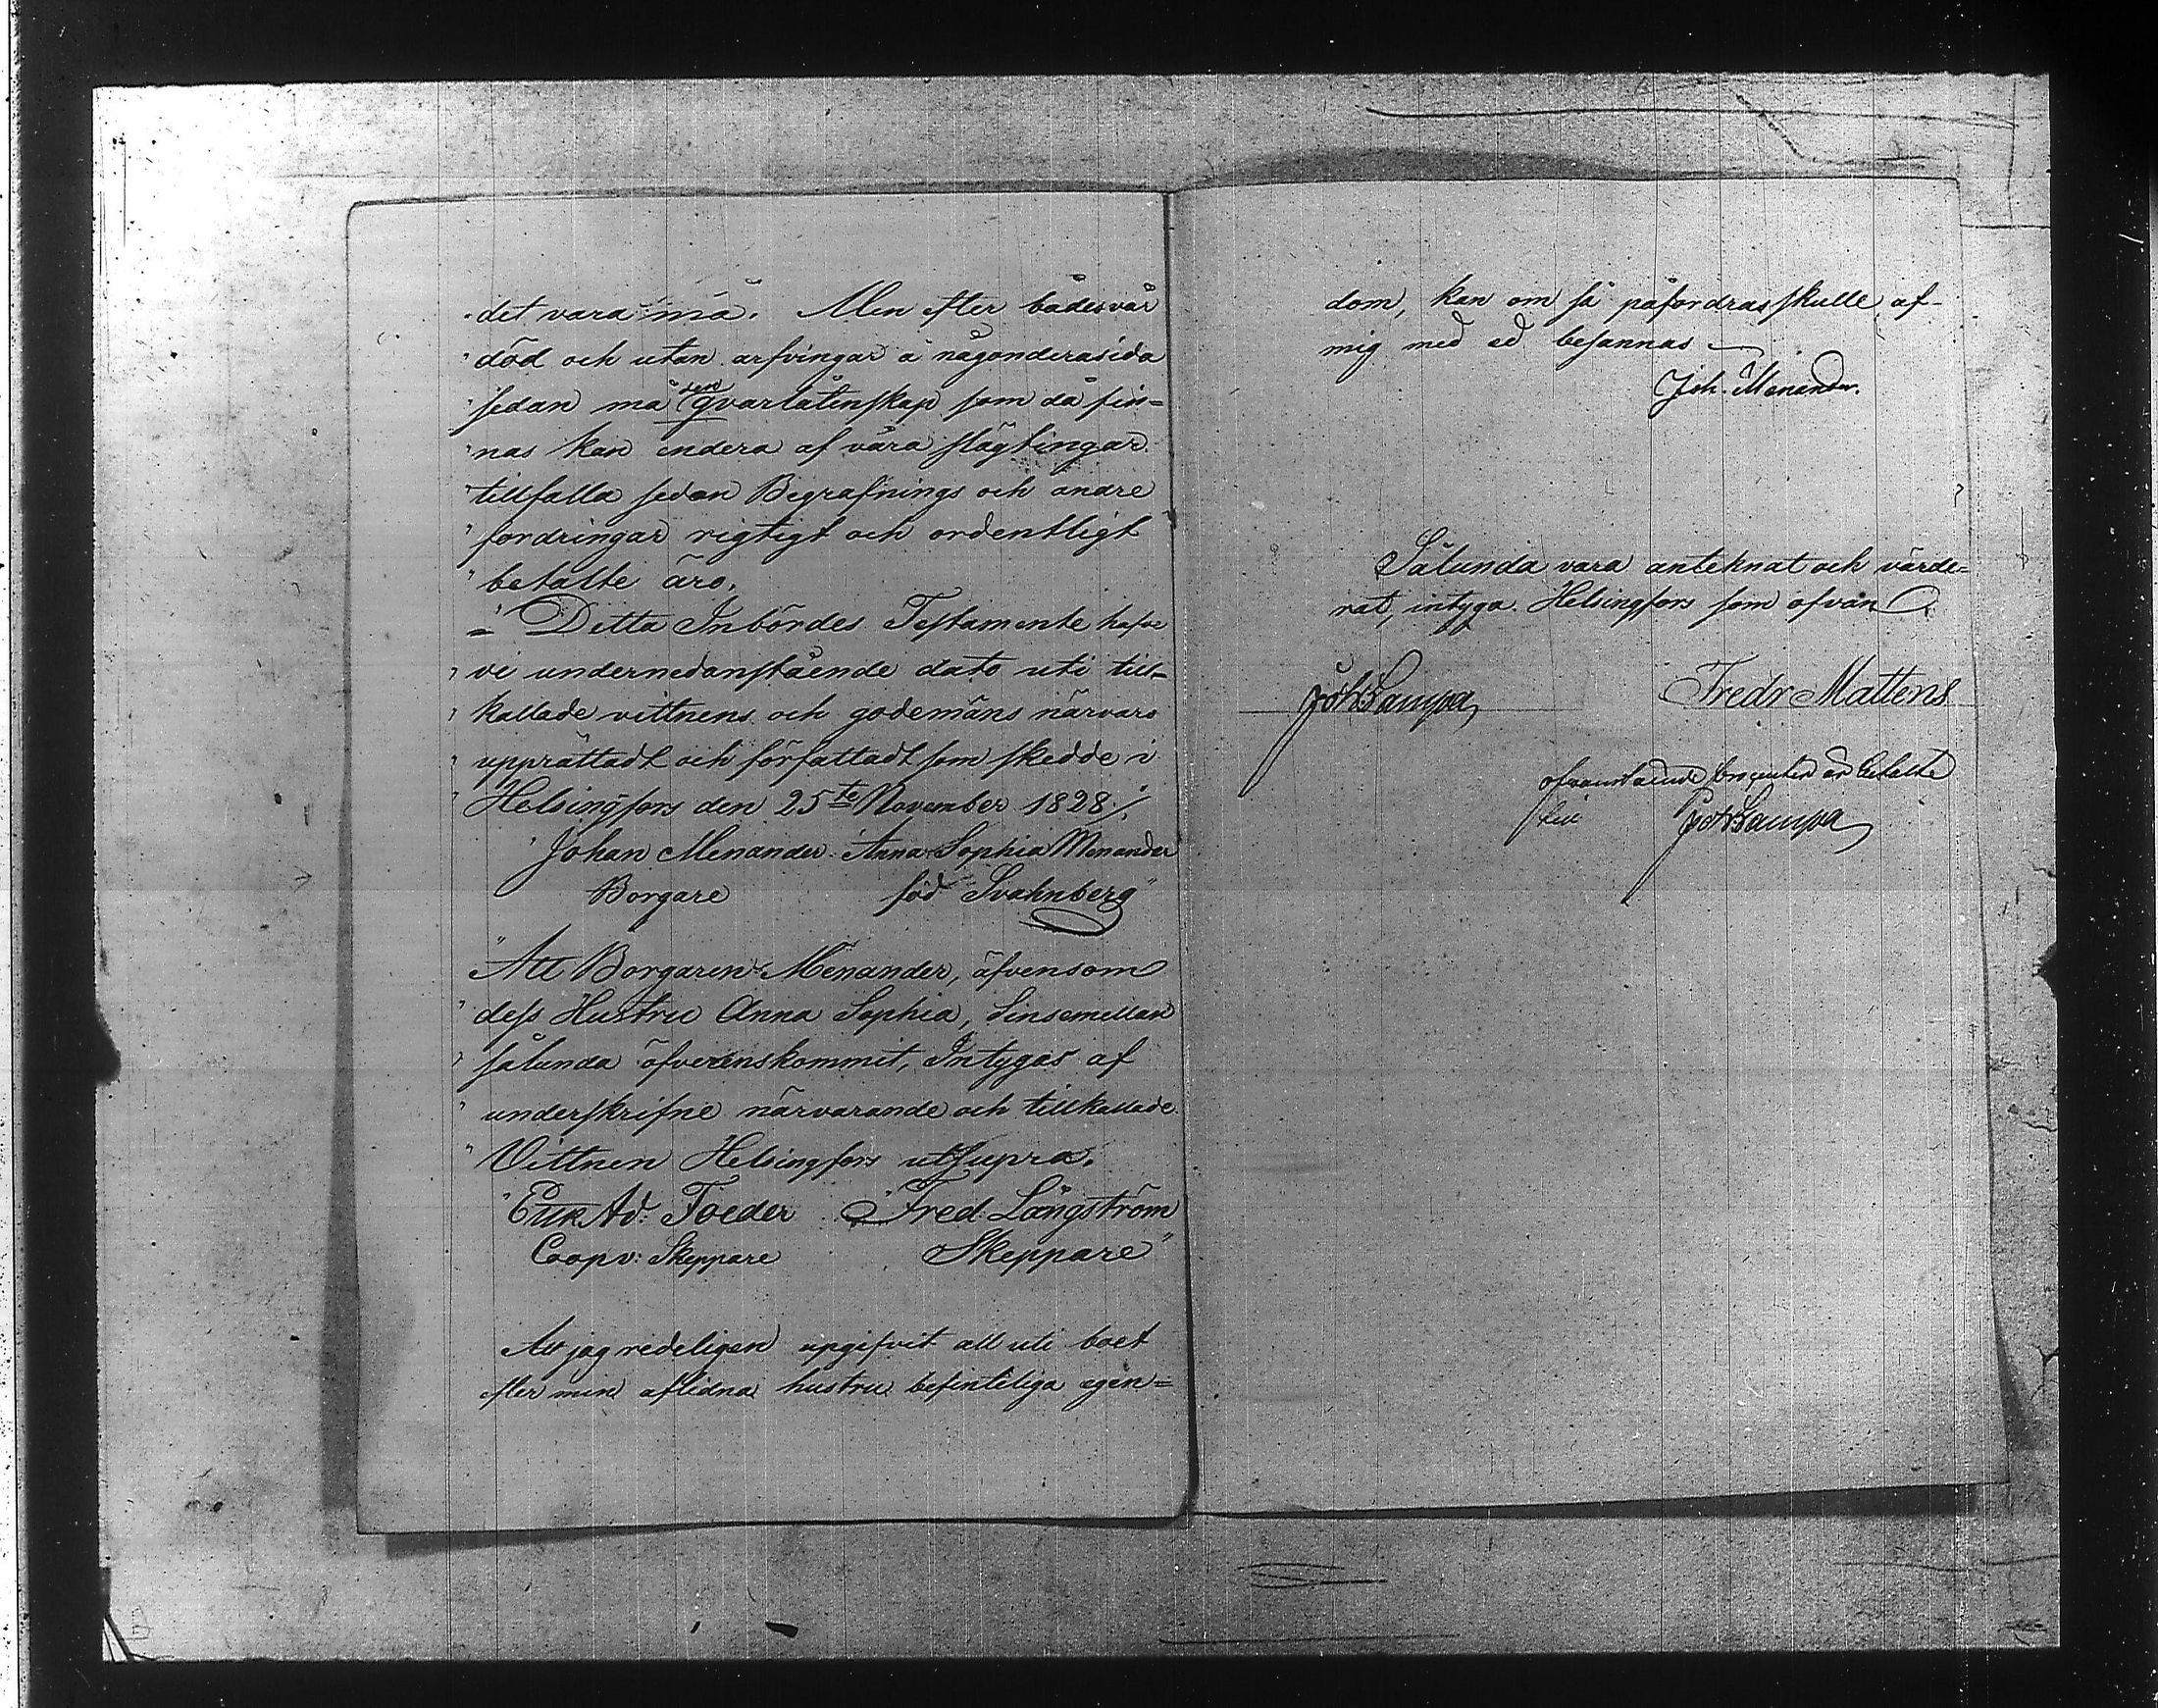 "det vara må. Men efter bådes vår
"död och utan arfvingar å någondera sida
"sedan må den qvarlåtenskap som då fin=
"nas kan endera af våra slägtingar
"tillfalla sedan Begrafnings och andre
"fordringar rigtigt och ordentligt
"betalte äro.
="Detta Inbördes Testamente hafve
"vi undernedanstående dato uti till=
"kallade vittnens och godemäns närvaro
"upprättadt och författadt som skedde i
"Helsingfors den 25te November 1828./.
"Johan Menander. Anna Sophia Menander
Borgare född Svahnberg"
"Att Borgaren Menander, äfvensom
"dess Hustru Anna Sophia, Sinsemellan
"sålunda öfverenskommit, Intygas af
"underskrifne närvarande och tillkallade
"Vittnen Helsingfors utsupra.
"Erik Ad: Foeder Fred. Långström
Coopv: Skeppare Skeppare"
Att jag redeligen upgifvit all uti boet
efter min aflidna hustru befinteliga egen=
dom, kan om så påfordras skulle, af
mig med ed besannas
Joh. Menander.
Sålunda vara anteknat och värde=
rat, intyga. Helsingfors som ofvan
Joh Sampa Fredr Mattens
ofvanstående är betalte
Joh Sampa